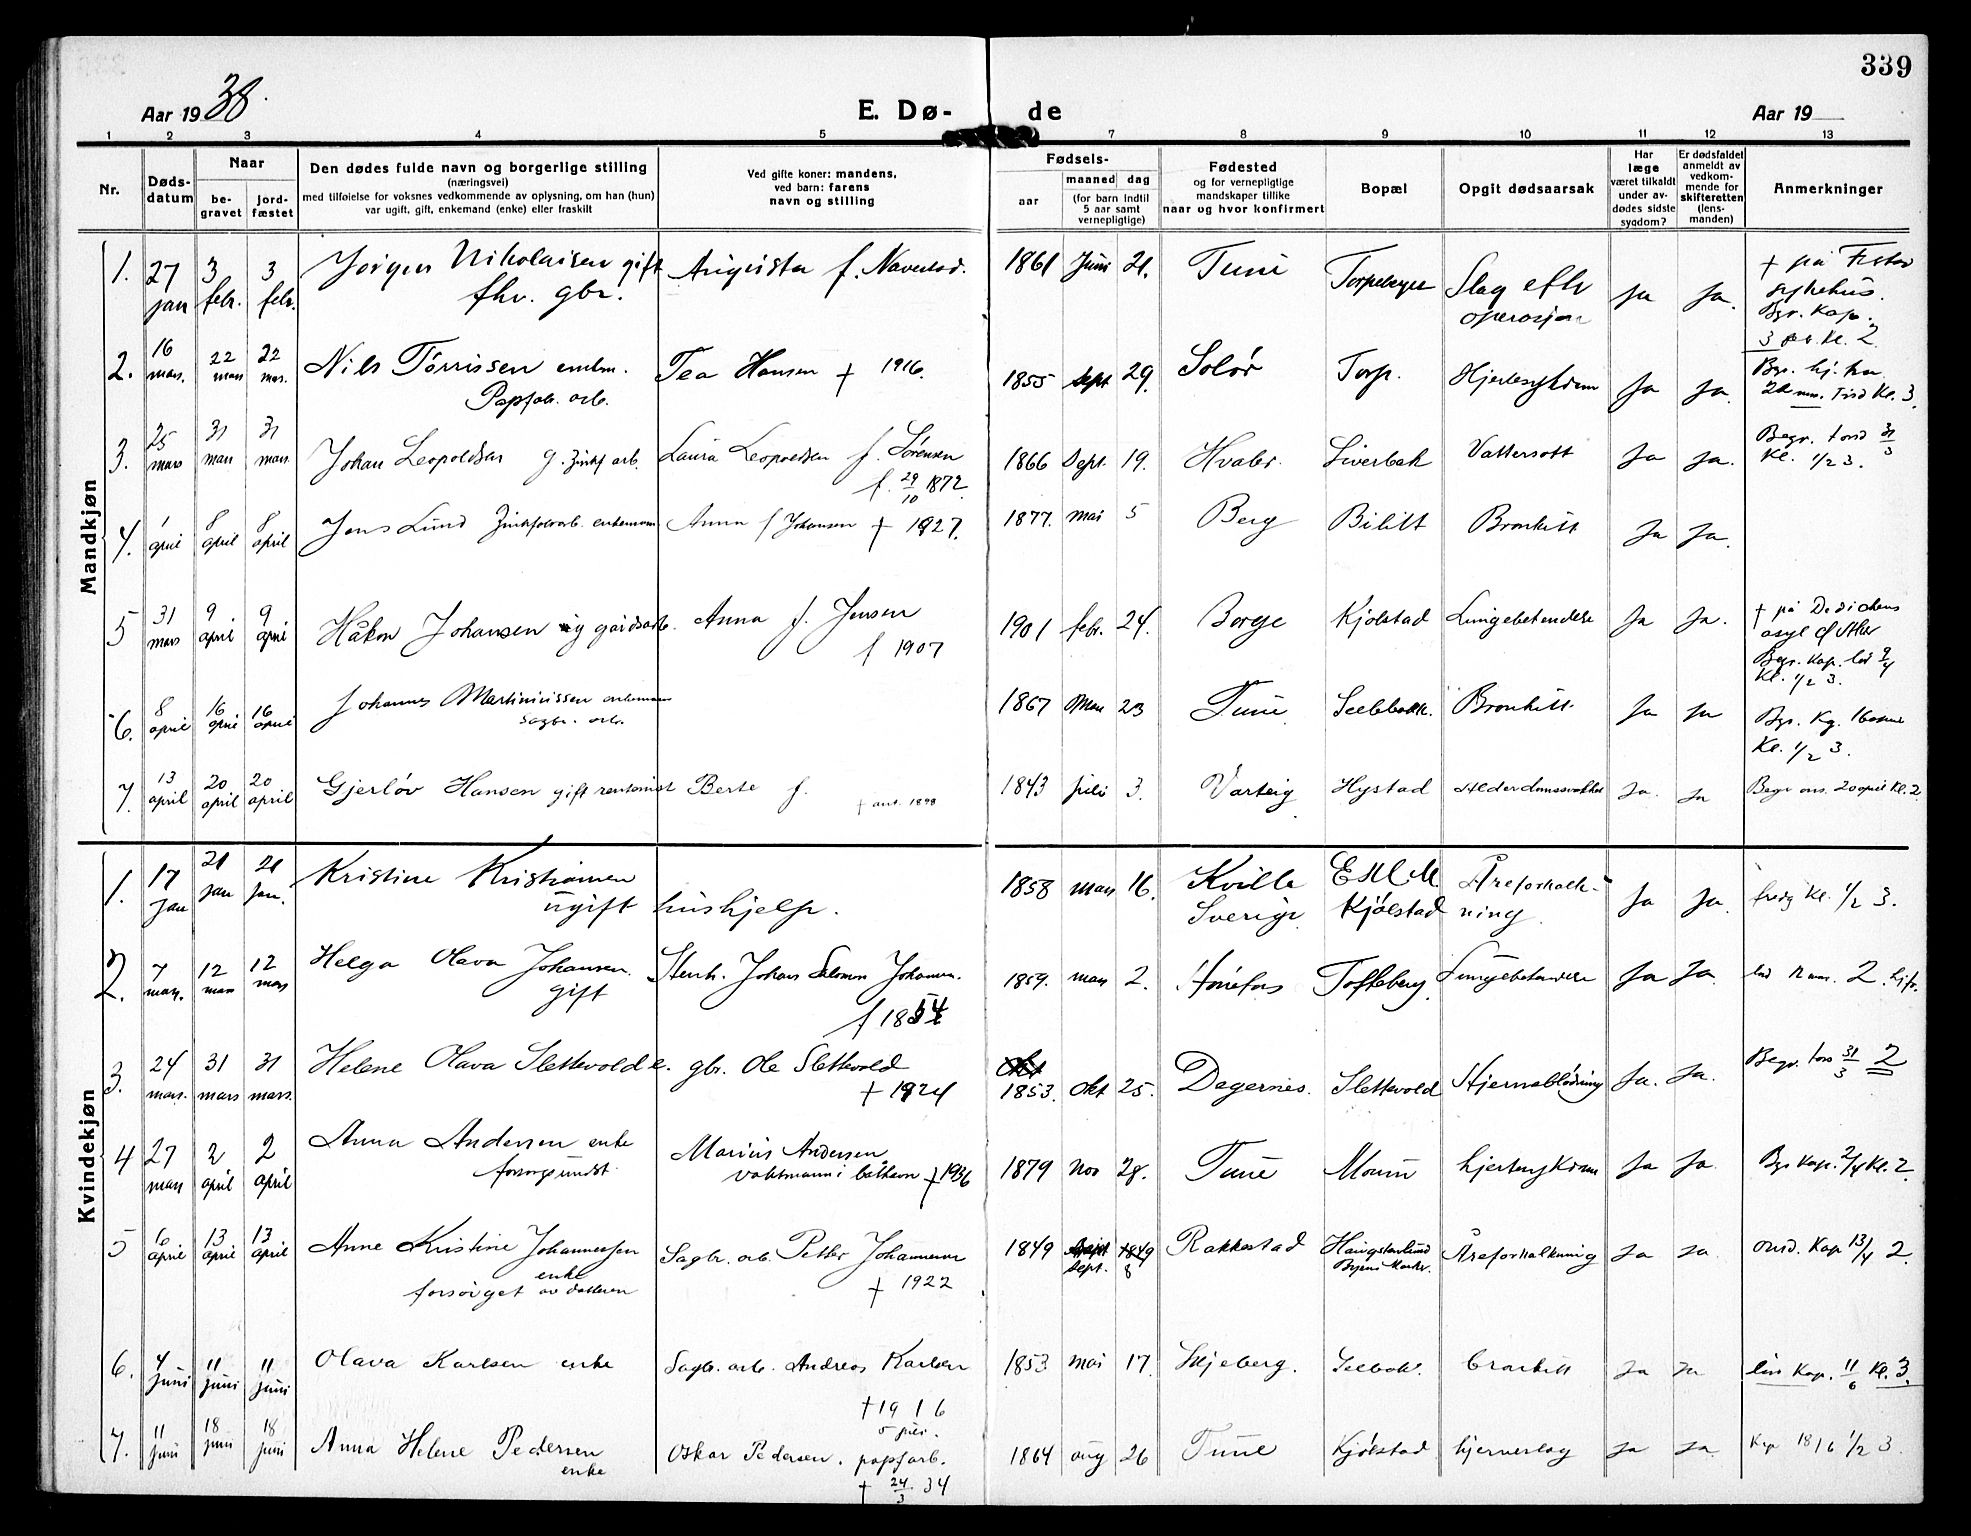 339
Aar 1938.
E. Dø- de
Aar 19
1 2 3 4 5 7 8 9 10 11 12 13
Nr.
Døds-
datum
Naar
be-
gravet
jord-
fæstet
Den dødes fulde navn og borgerlige stilling
(næringsvei)
med tilføielse for voksnes vedkommende av oplysning, om han (hun)
var ugift, gift, enkemand (enke) eller fraskilt
Ved gifte koner: mandens,
ved barn: farens
navn og stilling
Fødsels-
aar
maaned dag
(for barn indtil
5 aar samt
vernepligtige)
Fødested
og for vernepligtige
mandskaper tillike
naar og hvor konfirmert
Bopæl
Opgit dødsaarsak
Har
læge
været tilkaldt
under av-
dødes sidste
sygdom?
Er dødsfaldet
anmeldt av
vedkom-
mende for
skifteretten
(lens-
manden)
Anmerkninger
Mandkjøn
1. 27 jan 3 febr. 3 febr. Jørgen Nikolaisen gift fhv. gbr. Augusta f. Navestad. 1861 Juni 21. Tune Slag efter operasjon Ja Ja. + på sykehus. Bgr. Kap. 3 Kl. 2
2. 16 mars. 22 mars 22 mars. Nils Tørrissen enkm. Papfabr. arb. Tea Hansen + 1916. 1855 Sept 29. Solør Torp. Hjertesykdom Ja Ja. Kl. 3.
3. 25 mars 31 mars 31 mars. Johan Leopoldsen g. zinkf arb. Laura Leopoldsen f. Sørensen f. 29/10 1872. 1866 Sept. 19. Hvaler. Vattersott Ja Ja. Begr. torsd 31/3 Kl. 1/2 3.
4. 1 april 8 april 8 april Jens Lund enkemann Anna f Johansen + 1927. 1877. mai 5 Berg Bilitt Bronkitt Ja Ja.
5 31 mars 9 april 9 april Håkon Johansen g gårdsarb. Anna f. Jensen f 1907 1901 febr. 24. Borge Kjølstad Lungebetendelse Ja Ja. + på Dedichens asyl Begr. Kap. lød 9/4 Kl. 1/2 3.
6. 8 april 16 april 16 april Johannes Martiniussen enkemann sagbr. arb. 1867 Mars 23 Tune Bronkitt. Ja Ja Bgr. Kl. 1/2 3.
7. 13 april 20 april 20 april Gjerløv Hansen gift rentenist Berte f. + ant. 1898 1843 juli 3. Varteig Hystad Alderdomssvakhet Ja. Ja Begr ons. 20 april Kl. 2
Kvindekjøn
1. 17 jan 21 jan 21 jan. Kristine Kristiansen ugift hushjelp. 1858 mars 16. Kville Sverige Kjølstad Åreforkalk- ning. Ja Ja. fredg Kl. 1/2 3.
2. 7 mars. 12 mars 12 mars Helga Olava Johansen. gift Stenh. Johans Salomon Johansen. f 1854 1859. mars 2. Hønefos Tofteberg. Lungebetendelse Ja Ja. lød 12 mars. 2. hjfr.
3. 24 mars. 31 mars 31 mars. Helene Olava Slettevold e. gbr. Ole Slettevold + 1924 1853. Okt 25. Degernes. Slettevold Hjerneblødning Ja. Ja. Begr. tors 31/3 2
4 27 mars 2 april 2 april Anna Andersen enke forsorgsundst. Marius Andersen vaktmann i båthavn + 1936 1879 Nov 28. Tune Moum hjertesykdom Ja Ja. Bgr Kap. 2/4 Kl. 2.
5 6 april 13 april 13 april Anne Kristine Johannessen enke forsørget av datteren Sagbr. arb. Petter Johannessen + 1922 1849 Sept. 8 Rakkestad Haugstenlund Åreforkalkning Ja Ja. onsd. Kap 13/4 2.
6. 4 juni 11 juni 11 juni Olava Karlsen enke Sagbr. arb. Andreas Karlsen + 1916 5 juli. 1853 mai 17. Skjeberg. Seebak. bronkitt Ja Ja Kap. 11/6 Kl. 3.
7. 11 juni 18 juni 18 juni Anna Helene Pedersen enke Oskar Pedersen. papfarb. + 24/3 34 1864 aug 26 Tune Kjølstad hjerneslag Ja Ja. Kap 18/6 1/2 3.